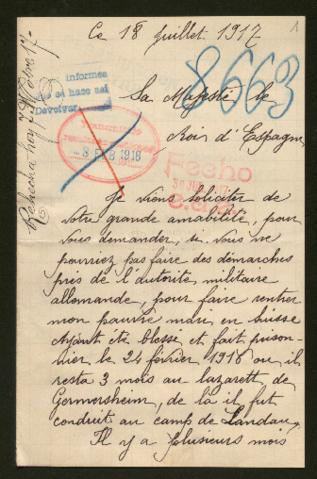 Ce 18 juillet 1917
8663
informes
se se hace así
Devolver
Rehecha hoy 7 Nobre 17.
Sa Majesté le
Roi d'Espagne
3 FEB 1918
Fecho
Je viens soliciter de
votre grande amabilité, pour
vous demander, si vous ne
pourriez pas faire des démarches
près de l'autorité militaire
allemande, pour faire rentrer
mon pauvre mari, en Suisse
Ayant été blessé et fait prison-
nier le 24 février 1916 où il
resta 3 mois au lazarett de
Germersheim, de là il fut
conduit au camp de Landau,
Il y a plusieurs mois